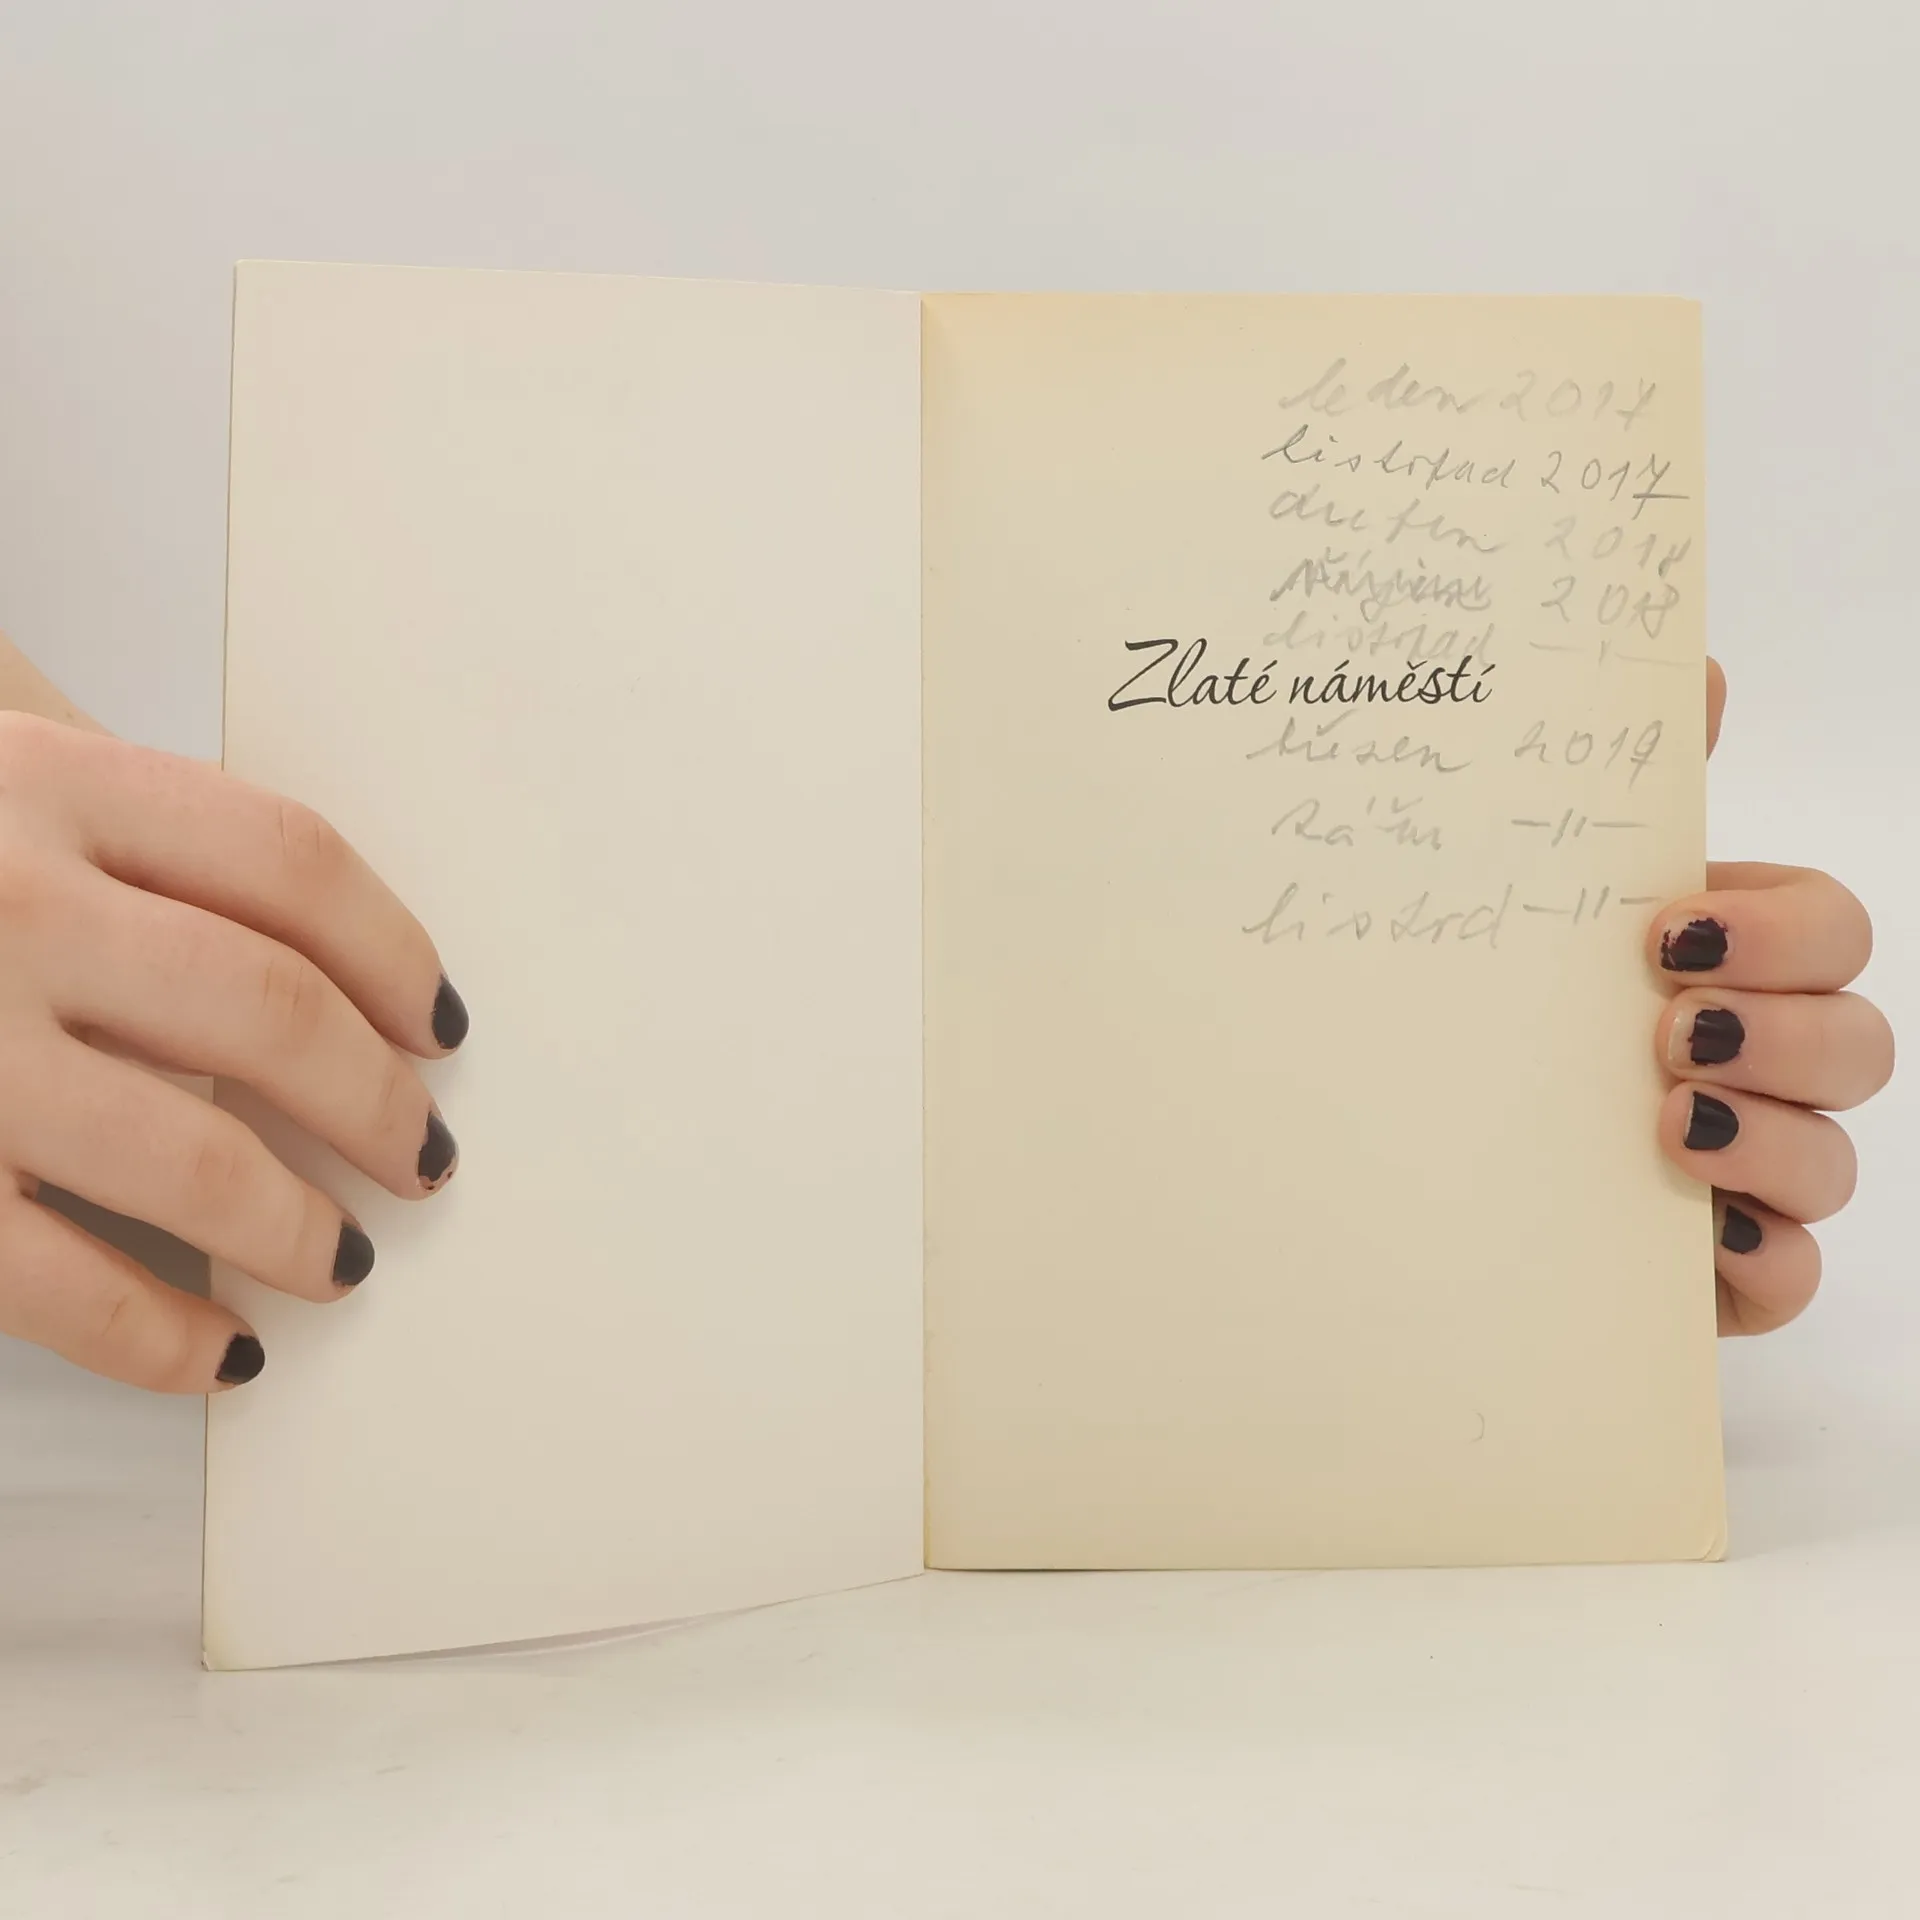 leden 2017
listopad 2017
duben 2018
2018
listopad —〃—
Zlaté náměstí
březen 2019
září —〃—
—〃—